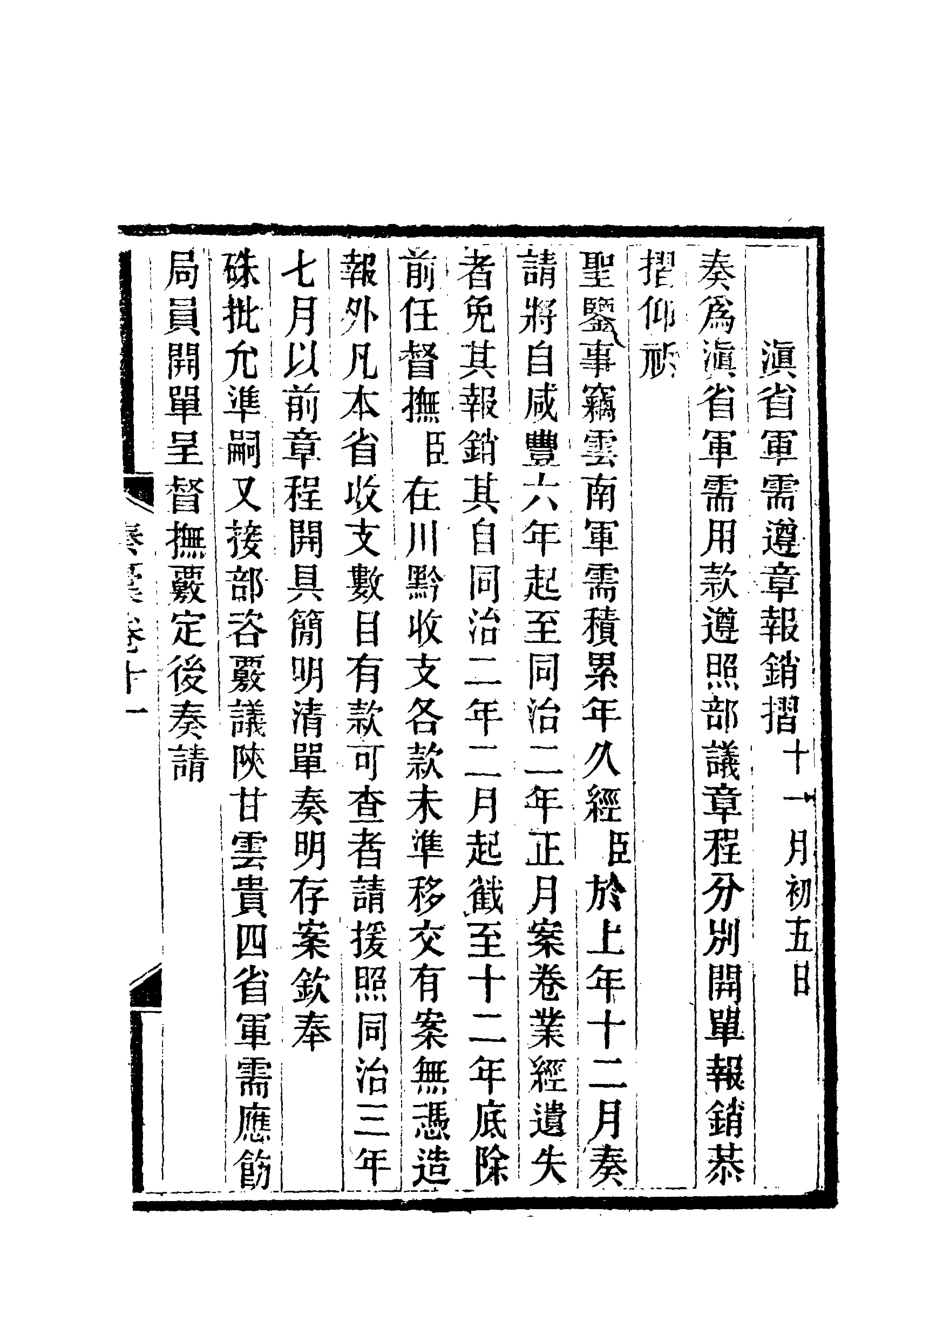 滇省軍需遵章報銷摺十一月初五日
奏爲滇省軍需用款遵照部議章程分別開單報銷恭
摺仰祈
聖鑒事竊雲南軍需積累年久經臣於上年十二月奏
請將自咸豐六年起至同治二年正月案卷業經遺失
者免其報銷其自同治二年二月起截至十二年底除
前任督撫臣在川黔收支各款未準移交有案無憑造
報外凡本省收支數目有款可查者請援照同治三年
七月以前章程開具簡明清單奏明存案欽奉
硃批允準嗣又接部咨覈議陝甘雲貴四省軍需應飭
局員開單呈督撫覈定後奏請
奏稾卷十一